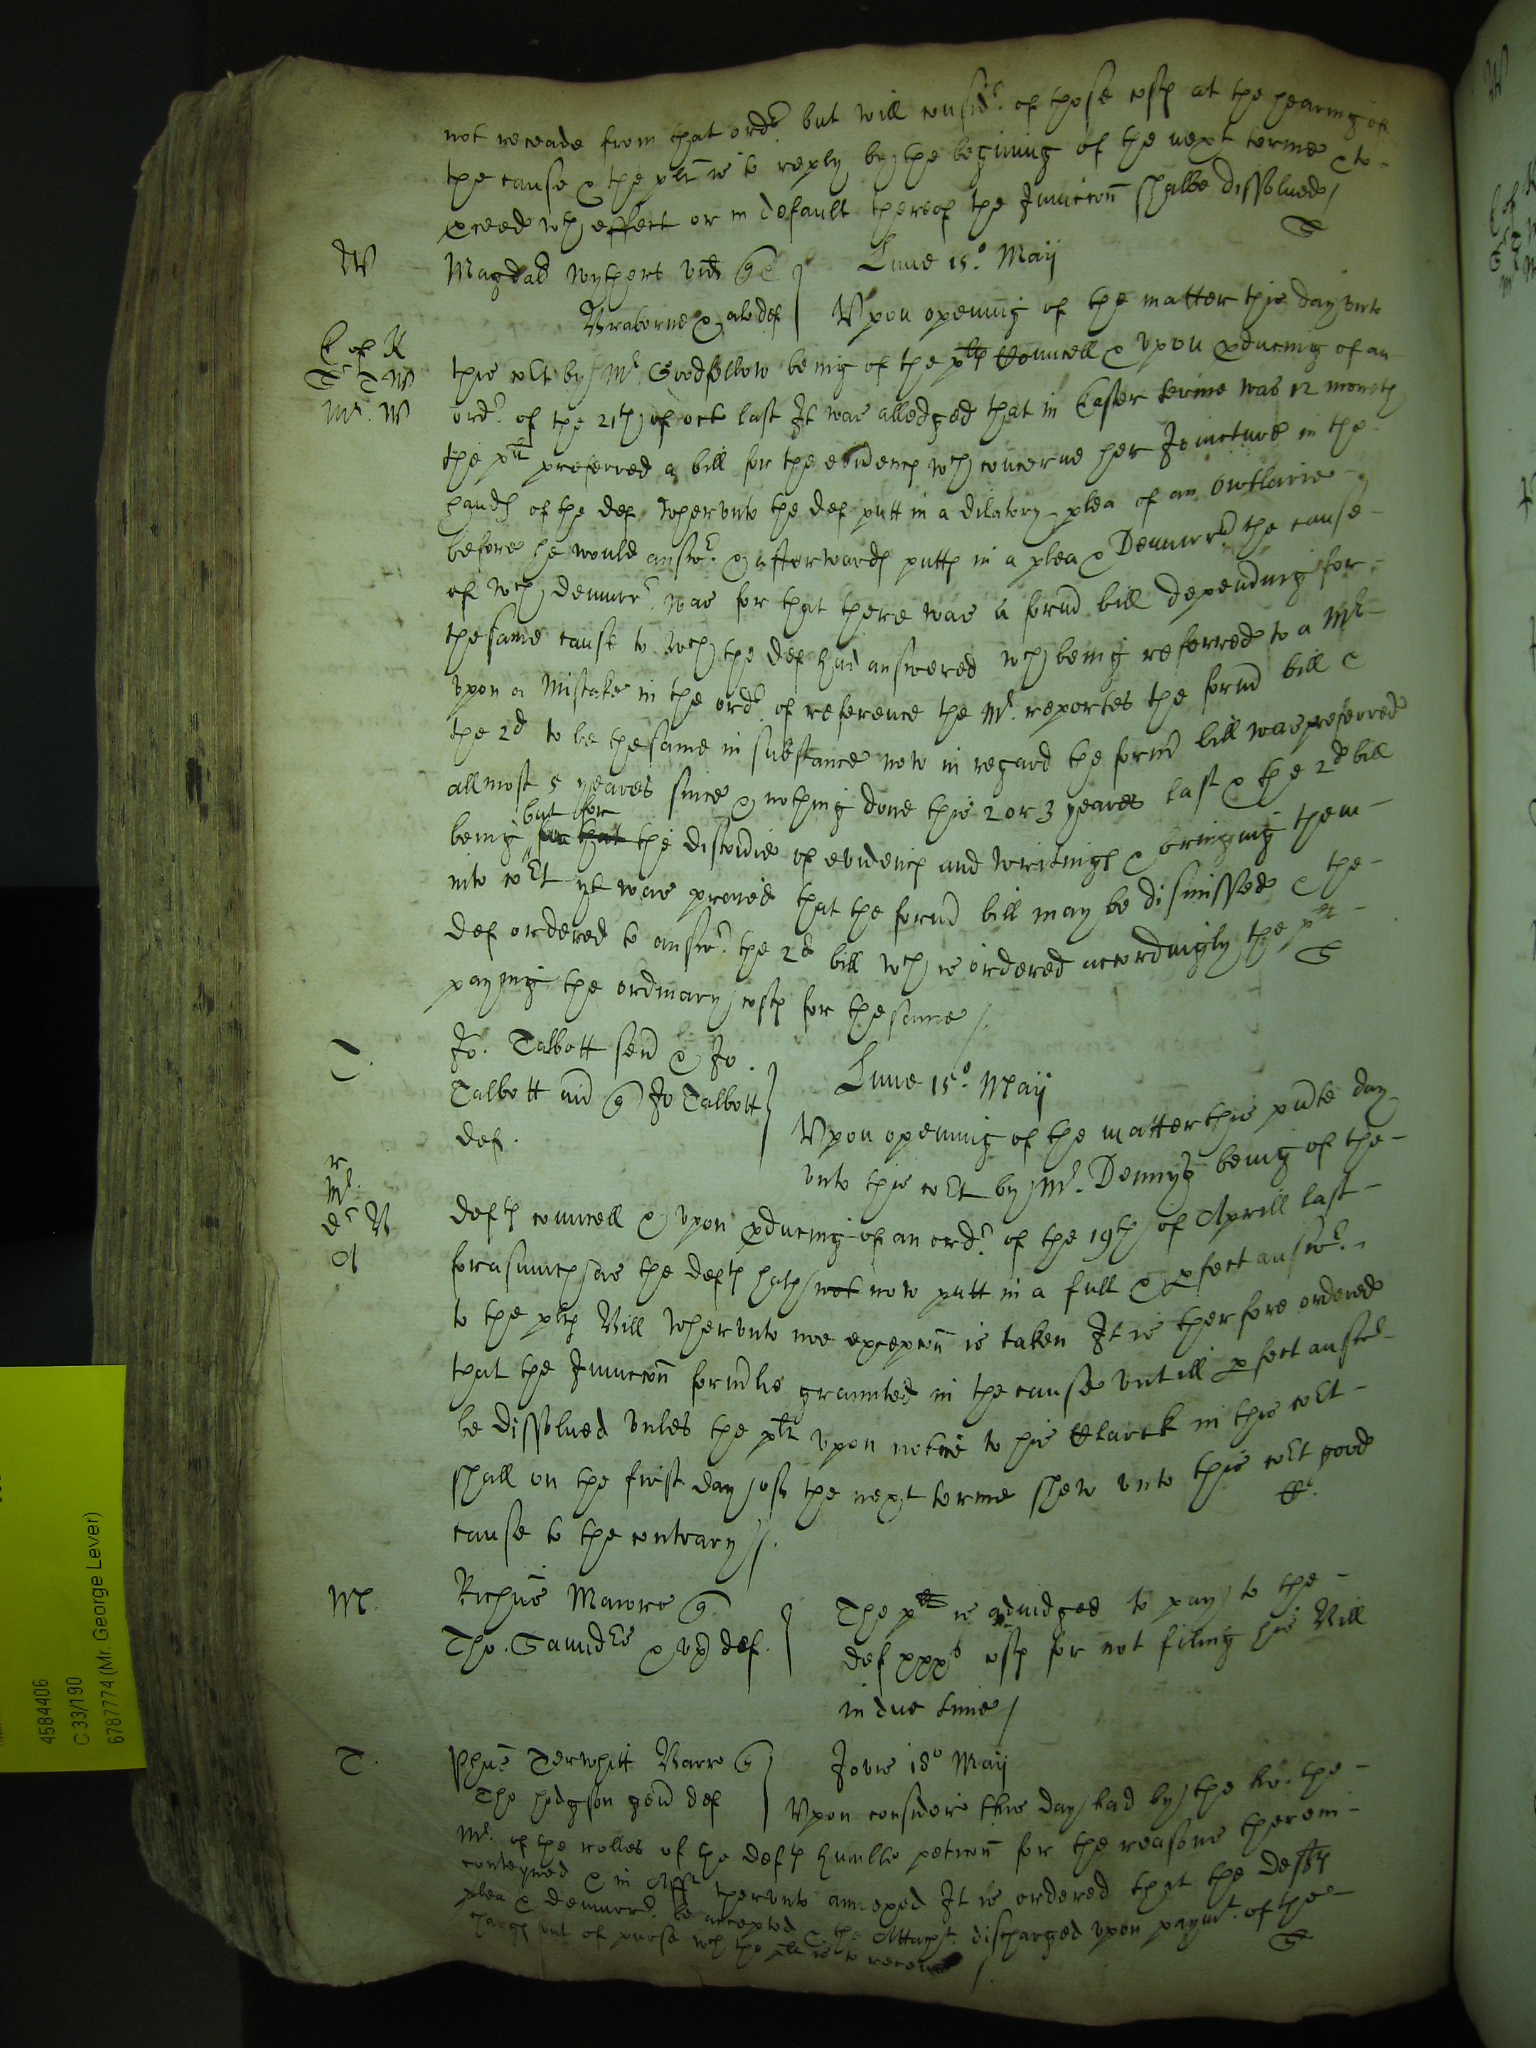 not receade from that ordr but will considr of those costs at the hearing of
the cause & the plt is to reply by the begining of the next terme & to
proceed wth effect or in default thereof the Iniuccon shalbe dissolved /
S
W
Magdad Wythers vid qe
Lune 15o Maij
Braborne & al def
Upon opening of the matter this day unto
E of K
this cort by Mr Goodfellow being of the plts Councell & upon producing of an
Mr. W
ordr of the 21th of oct last It was alledged that in Easter terme was 12 moneth
the plt preferred a bill for the evidence wch concerne her Joincture in the
hands of the def wherunto the def putt in a dilatory plea of an owtlarie
before he would answr & afterwards putts in a plea & Demurrr the cause
of wch demurrr was for that there was a formr bill depending for
the same cause to wch the def had answered wch being referred to a Mr
upon a mistake in the ordr of reference the Mr reportes the formr bill &
the 2d to be the same in substance now in regard the formr bill was preferred
allmost 5 yeares since & nothing done this 2 or 3 yeares last & the 2d bill
but for
being for that the discoverie of evidence and writings & bringing them
into cort yt was prayed that the formr bill may be dismissed & the
def ordered to answr the 2d bill wch is ordered accordingly the plt
paying the ordinary costs for the same /
S
T.
Jo. Talbott senr & Jo.
Talbott iunr q Jo Talbott
def.
Lune 15o Maij
Upon opening of the matter this pnte day
unto this cort by Mr. Dennys being of the
r
Mr.
defts councell & upon producing of an ordr of the 19th of Aprill last
A
forasmuch as the defts hath not now putt in a full & pfect answr
to the plts Bill wherunto noe excepcon is taken It is therfore ordered
that the Iniuccon formrlie graunted in the cause untill pfect answr
be dissolved unles the plt upon notice to his Clarck in this cort
shall on the first day of the next terme shew unto this cort good
cause to the contrary /.
M.
Richus Mawre q
Tho. Saundrs & ux def.
The plt is adiudged to pay to the
def xxxs costs for not filing his Bill
in due time /
T.
Phus Terwhitt Barr q
Tho hodgson genr def
Jovis 18o Maij
Upon consideracon this day had by the ho: the
Mr of the rolles of the defts humble peticon for the reasons therein
conteyned & in Afft therunto annexed It is ordered that the defts
plea & demurrr be accepted & the Attachmt discharged upon paymt of the
charge out of purse wch the plt is to receive /
S
4584406
C 33/190
6787774 (Mr. George Lever)